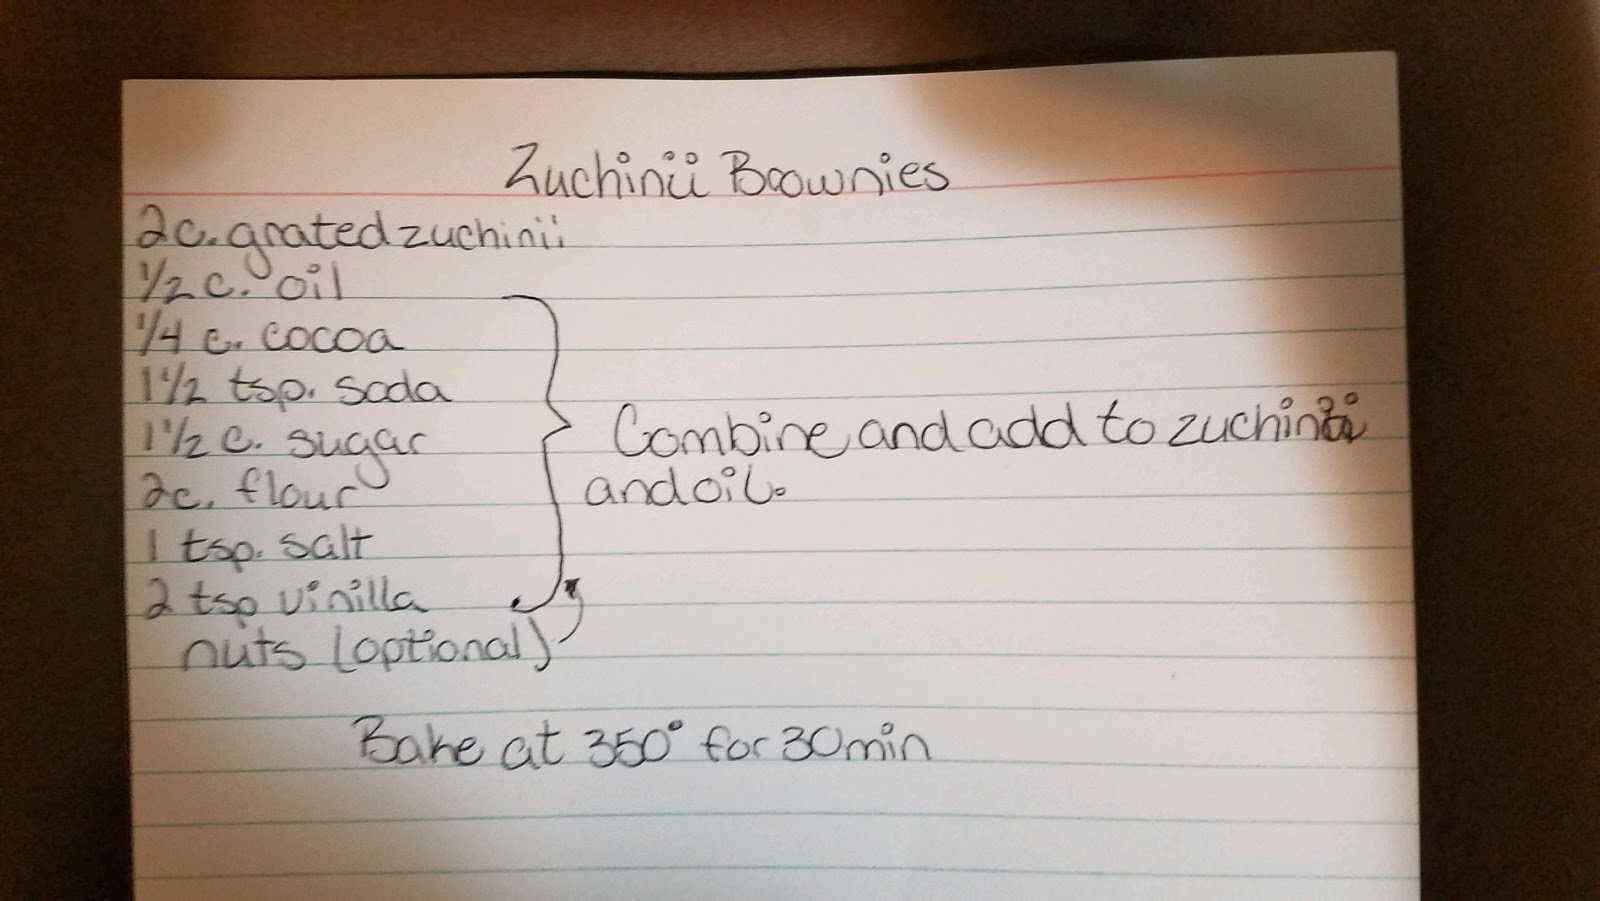 Zuchinii Brownies
2c. grated zuchinii
1/2 c. oil
1/4 c. cocoa
1 1/2 tsp. soda
1 1/2 c. sugar
2c. flour
1 tsp. salt
2 tsp vinilla
nuts (optional)
Combine and add to zuchinii
and oil.
Bake at 350° for 30min